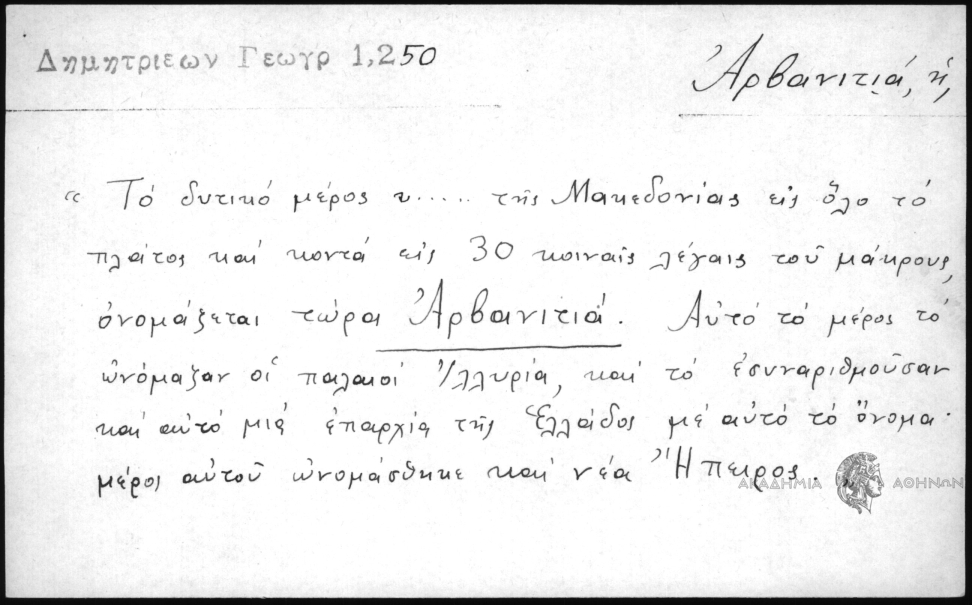 Δημητριεων Γεωγρ 1,250
Ἀρβανιτιά, ἡ,
“ Τό δυτικό μέρος τ..... τῆς Μακεδονίας εἰς ὅλο τό
πλάτος καί κοντά εἰς 30 κοιναῖς λέγαις τοῦ μάκρους,
ὀνομάζεται τώρα Ἀρβανιτιά. Αὐτό τό μέρος τό
ὠνόμαζαν οἱ παλαιοί Ἰλλυρία, καί τό ἐσυναριθμοῦσαν
καί αὐτό μιά ἐπαρχία τῆς Ἑλλάδος μέ αὐτό τό ὄνομα·
μέρος αὐτοῦ ὠνομάσθηκε καί νέα Ἤπειρος.
ΑΚΑΔΗΜΙΑ ΑΘΗΝΩΝ